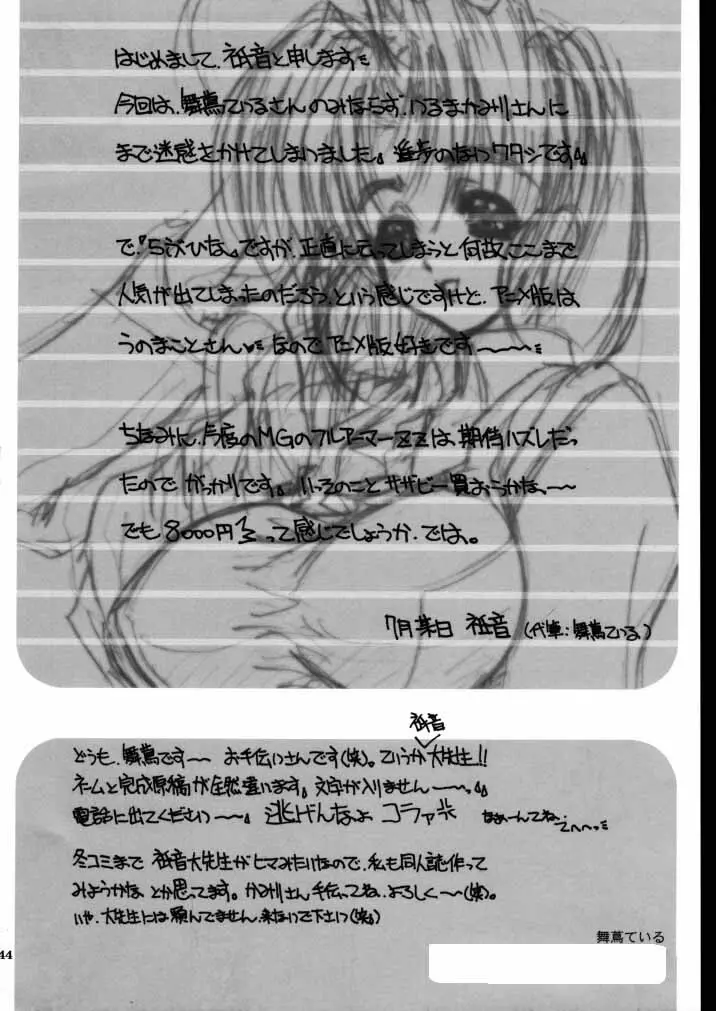 はじめまして、祇音と申します
今回は、舞蔦ているさんのみならず、いるまかみりさんに
まで迷惑をかけてしまいました。進歩のないワタシです。
で『らぶひな』ですが、正直に云ってしまうと何故、ここまで
人気が出てしまったのだろう、という感じですけど、アニメ版は
うのまことさん なのでアニメ版好きです〜〜〜
ちなみに、今度のMGのフルアーマーZZは、期待ハズレだっ
たのでがっかりです。いっそのことサザビー買おうかな、〜〜
でも8000円 って感じでしょうか、では。
7月某日 祇音 (代筆:舞蔦ている)
祇音
どうも、舞蔦です〜〜 お手伝いさんです(笑)。ていうか大先生!!
ネームと完成原稿が全然違います。文字が入りません〜〜。
電話に出てくださいっ〜〜。逃げんなよ コラァ なぁーんてね、
てへへっ
冬コミまで 祇音大先生がヒマみたいなので、私も同人誌作って
みようかな、とか思ってます。かみりさん手伝ってね、よろしく〜〜(笑)。
いや、大先生には頼んでません、来ないで下さいっ(笑)
舞蔦ている
44